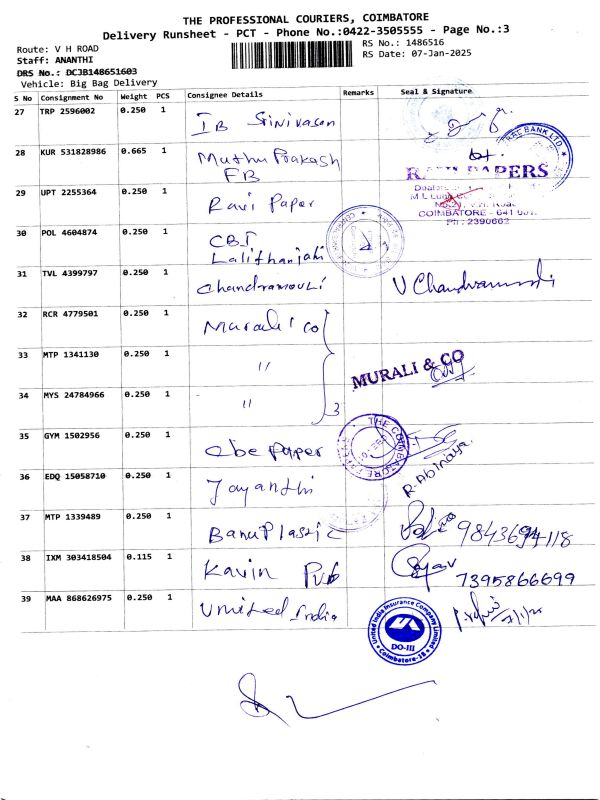 THE PROFESSIONAL COURIERS, COIMBATORE
Delivery Runsheet - PCT - Phone No.:0422-3505555 - Page No.:3
Route: V H ROAD
RS No.: 1486516
Staff: ANANTHI
RS Date: 07-Jan-2025
DRS No.: DCJB148651603
Vehicle: Big Bag Delivery
S No Consignment No Weight PCS Consignee Details Remarks Seal & Signature
27 TRP 2596002 0.250 1 IB Srinivasan
28 KUR 531828986 0.665 1 Muthu Prakash
FB
BANK LTD
RAVI PAPERS
29 UPT 2255364 0.250 1 Ravi Paper
COIMBATORE - 641 001.
Ph : 2390662
30 POL 4604874 0.250 1 CBI
Lalithanjali
31 TVL 4399797 0.250 1 Chandramouli V Chandramouli
32 RCR 4779501 0.250 1 Murali & Co
33 MTP 1341130 0.250 1 "
MURALI & CO
34 MYS 24784966 0.250 1 " 3
35 GYM 1502956 0.250 1 Obe Paper
THE COIMBATORE
36 EDQ 15058710 0.250 1 Jayanthi R. Abinaya
37 MTP 1339489 0.250 1 Banu Plastic 9843694118
38 IXM 303418504 0.115 1 Kavin Pvb 7395866699
39 MAA 868626975 0.250 1 United India
United India Insurance Company Limited
DO-III
Coimbatore-18